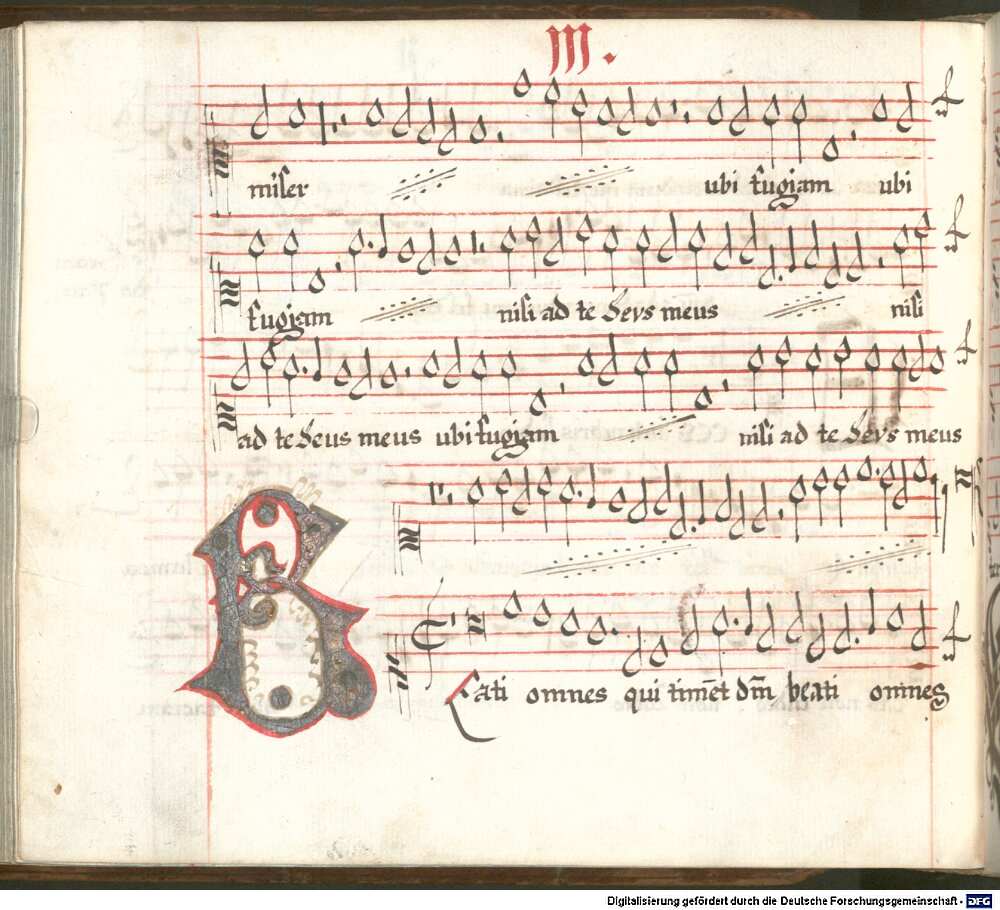 III.
miser ubi fugiam ubi
fugiam nisi ad te Deus meus nisi
ad te Deus meus ubi fugiam nisi ad te Deus meus
B
eati omnes qui timēt dm̄ beati omnes
Digitalisierung gefördert durch die Deutsche Forschungsgemeinschaft - DFG